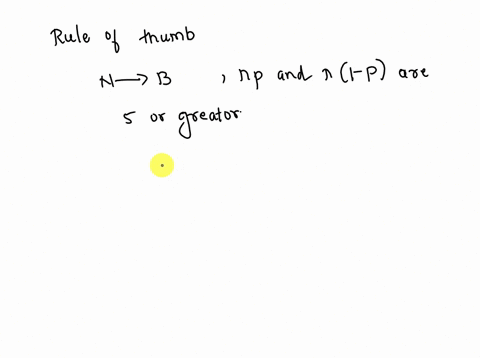 Rule of thumb
N → B , np and n (1-P) are
5 or greator